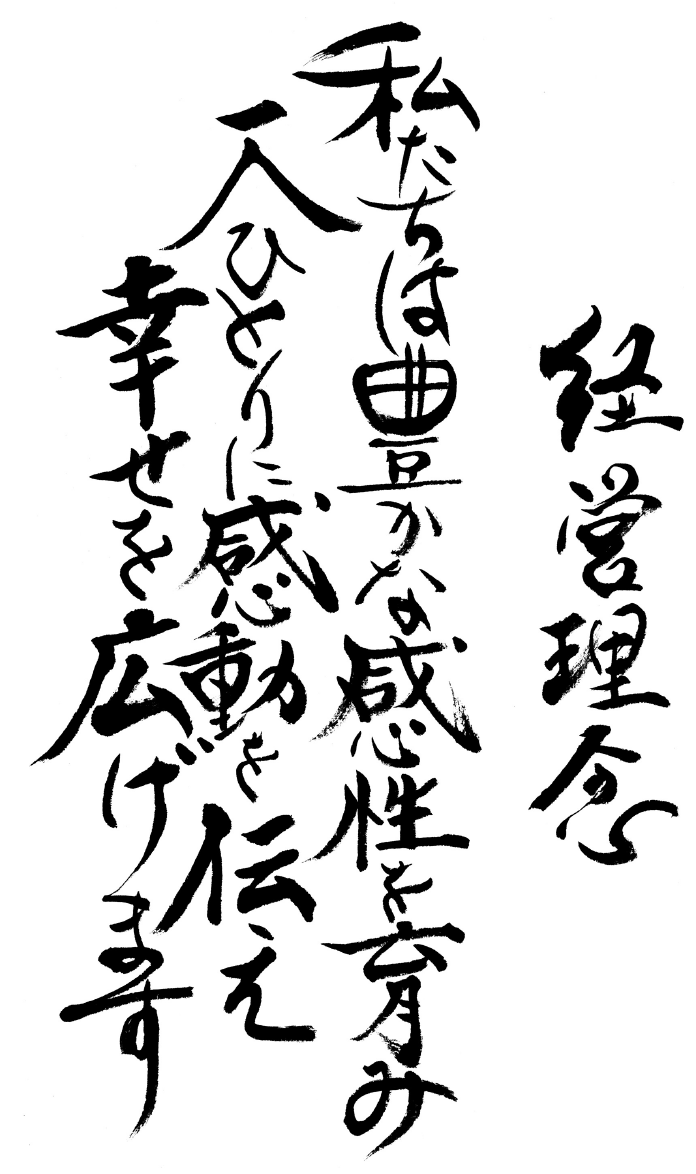 経営理念
私たちは豊かな感性を育み
一人ひとりに感動を伝え
幸せを広げます